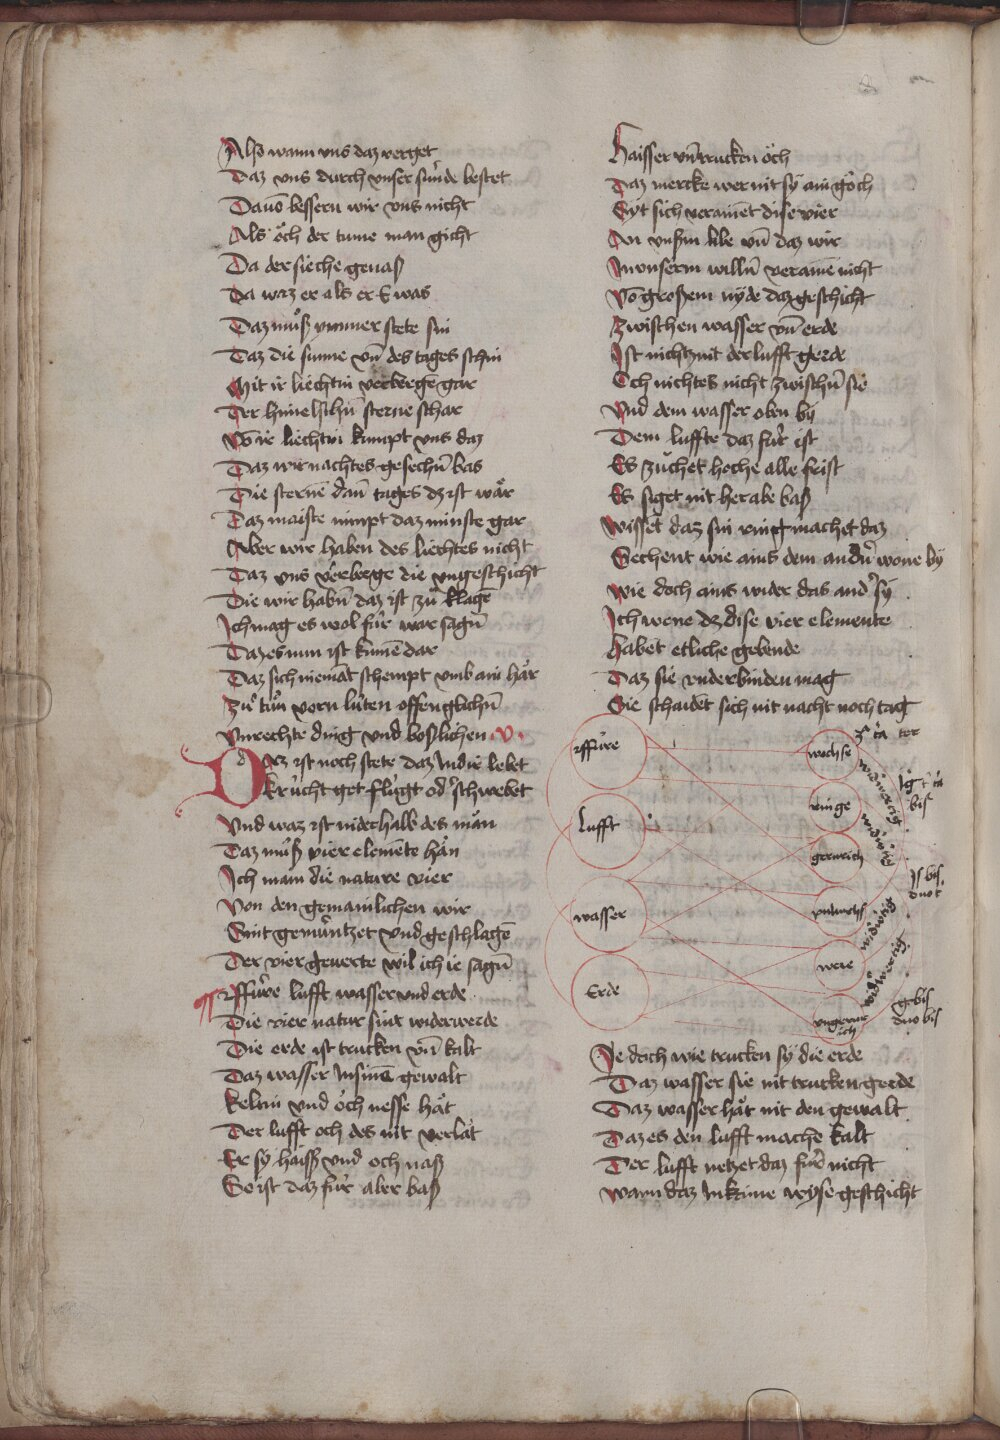 Also wann vns daz verget
Daz vns durch vnser sünde bestet
Dauō bessern wir vns nicht
Als öch der tume man gicht
Da der sieche genaß
Da waz er als er E was
Daz můß ymmer stete sin
Daz die sunne vn̄ des tages schin
Mit ir liechtin verberge gar
Der himelschū sterne schar
Vō ir liechtin kumpt vns daz
Daz wir nachtes gesechū bas
Die sterne dāū tages dz ist wăr
Daz maiste nimpt daz minste gar
Aber wir haben des liechtes nicht
Daz vns verberge die vngeschicht
Die wir habū daz ist zů klagē
Ich mag es wol für war sagū
Daz es nun ist kumē dar
Daz sich niemāt schempt vmb ain hăr
Zů tůn vorn lüten offenglichū
Vnrechte ding vnd boslichen . V .
D az ist noch stete daz Indie lebet
krücht get flügt od' schwebet
Vnd waz ist niderhalb des măn
Daz můß vier elemēte hăn
Ich main die nature vier
Von den gemainlichen wir
Sint gemüntzet vnd geschlagē
Der vier geuerte wil ich ie sagū
Das füre lufft wasser vnd erde
Die vier natur sint widerwerde
Die erde ist trucken vn̄ kalt
Daz wasser In sinē gewalt
keltin vnd öch nesse hăt
Der lufft och des nit verlăt
Er sy haiß vnd och naß
So ist daz für aber baß
Haisser vn̄ trucken öch
Daz mercke wer nit sy ain göch
Syt sich verainet dise vier
An vnserm libe vn̄ daz wir
In vnserm willū veraine nicht
Vō großem nyde daz geschicht
Zwischen wasser vn̄ erde
Ist nichtz mit der lufft gerde
Och nichtes nicht zwischū sie
Vnd dem wasser oben by
Dem luffte daz für ist
Es zuchet hoche alle frist
Es siget nit her abe baß
Wisset daz sin ring machet daz
Sechent wie ains dem andū wone by
Wie doch ains wider das and' sy
Ich wene dz dise vier elemente
Habēt etliche gebende
Daz sie vnderbinden mag
Sie schaidēt sich nit nacht noch tag
wechse
ringe
Lufft
gerurich
wasser
were
Erde
Je doch wie trucken sy die erde
Daz wasser sie nit trucken gerde
Daz wasser hăt nit den gewalt
Daz es den lufft mache kalt
Der lufft netzet daz für nicht
Wann daz In kaine wyse geschicht